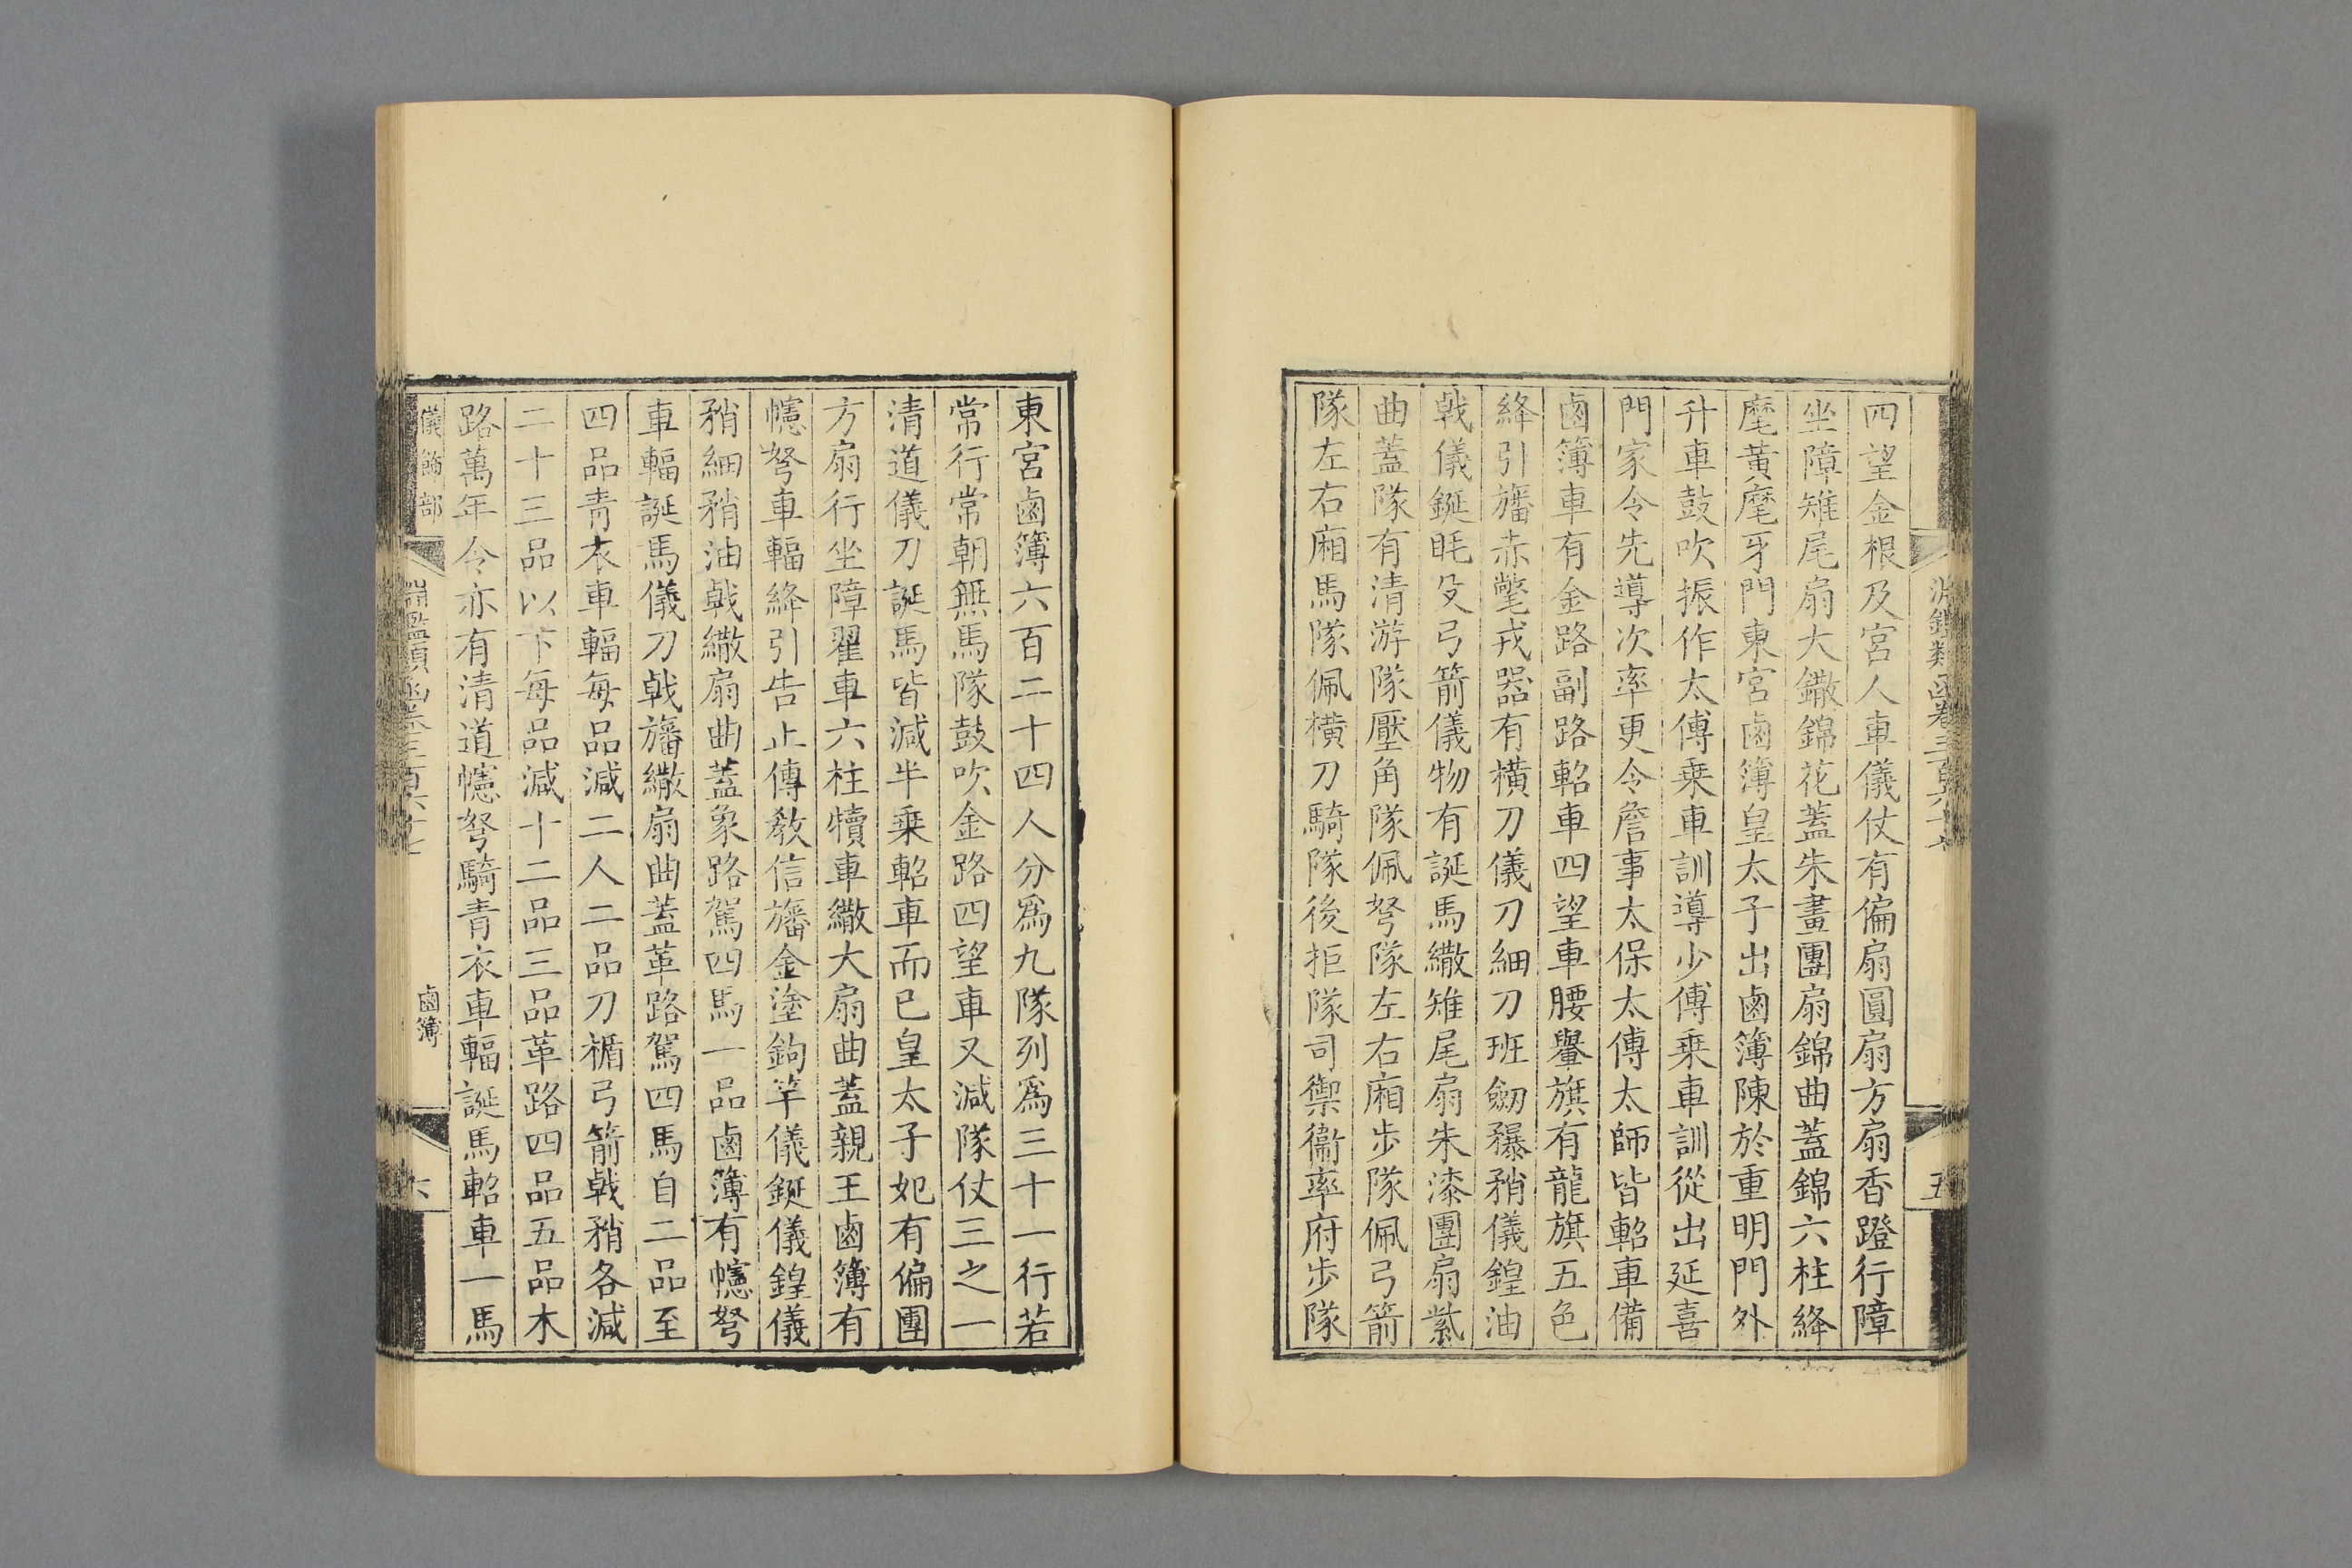 四望金根及宮人車儀仗有偏扇圓扇方扇香蹬行障
坐障雉尾扇大繖錦花蓋朱畫團扇錦曲蓋錦六柱絳
麾黃麾牙門東宮鹵簿皇太子出鹵簿陳於重明門外
升車鼓吹振作太傅乗車訓導少傅乗車訓從出延喜
門家令先導次率更令詹事太保太傅太師皆軺車備
鹵簿車有金路副路軺車四望車腰轝旗有龍旗五色
絳引旛赤氅戎器有橫刀儀刀細刀班劒𥎱矟儀鍠油
戟儀鋋毦殳弓箭儀物有誕馬繖雉尾扇朱漆團扇紫
曲蓋隊有清游隊壓角隊佩弩隊左右廂步隊佩弓箭
隊左右廂馬隊佩橫刀騎隊後拒隊司禦衞率府步隊
東宮鹵簿六百二十四人分爲九隊列爲三十一行若
常行常朝無馬隊鼓吹金路四望車又減隊仗三之一
清道儀刀誕馬皆減半乗軺車而已皇太子妃有偏團
方扇行坐障翟車六柱犢車繖大扇曲蓋親王鹵簿有
幰弩車輻絳引告止傳教信旛金塗鉤竿儀鋋儀鍠儀
矟細矟油戟繖扇曲蓋象路駕四馬一品鹵簿有幰弩
車輻誕馬儀刀戟旛繖扇曲蓋革路駕四馬自二品至
四品青衣車輻每品減二人二品刀楯弓箭戟矟各減
二十三品以下每品減十二品三品革路四品五品木
路萬年令亦有清道幰弩騎青衣車輻誕馬軺車一馬
儀飾部
鹵簿